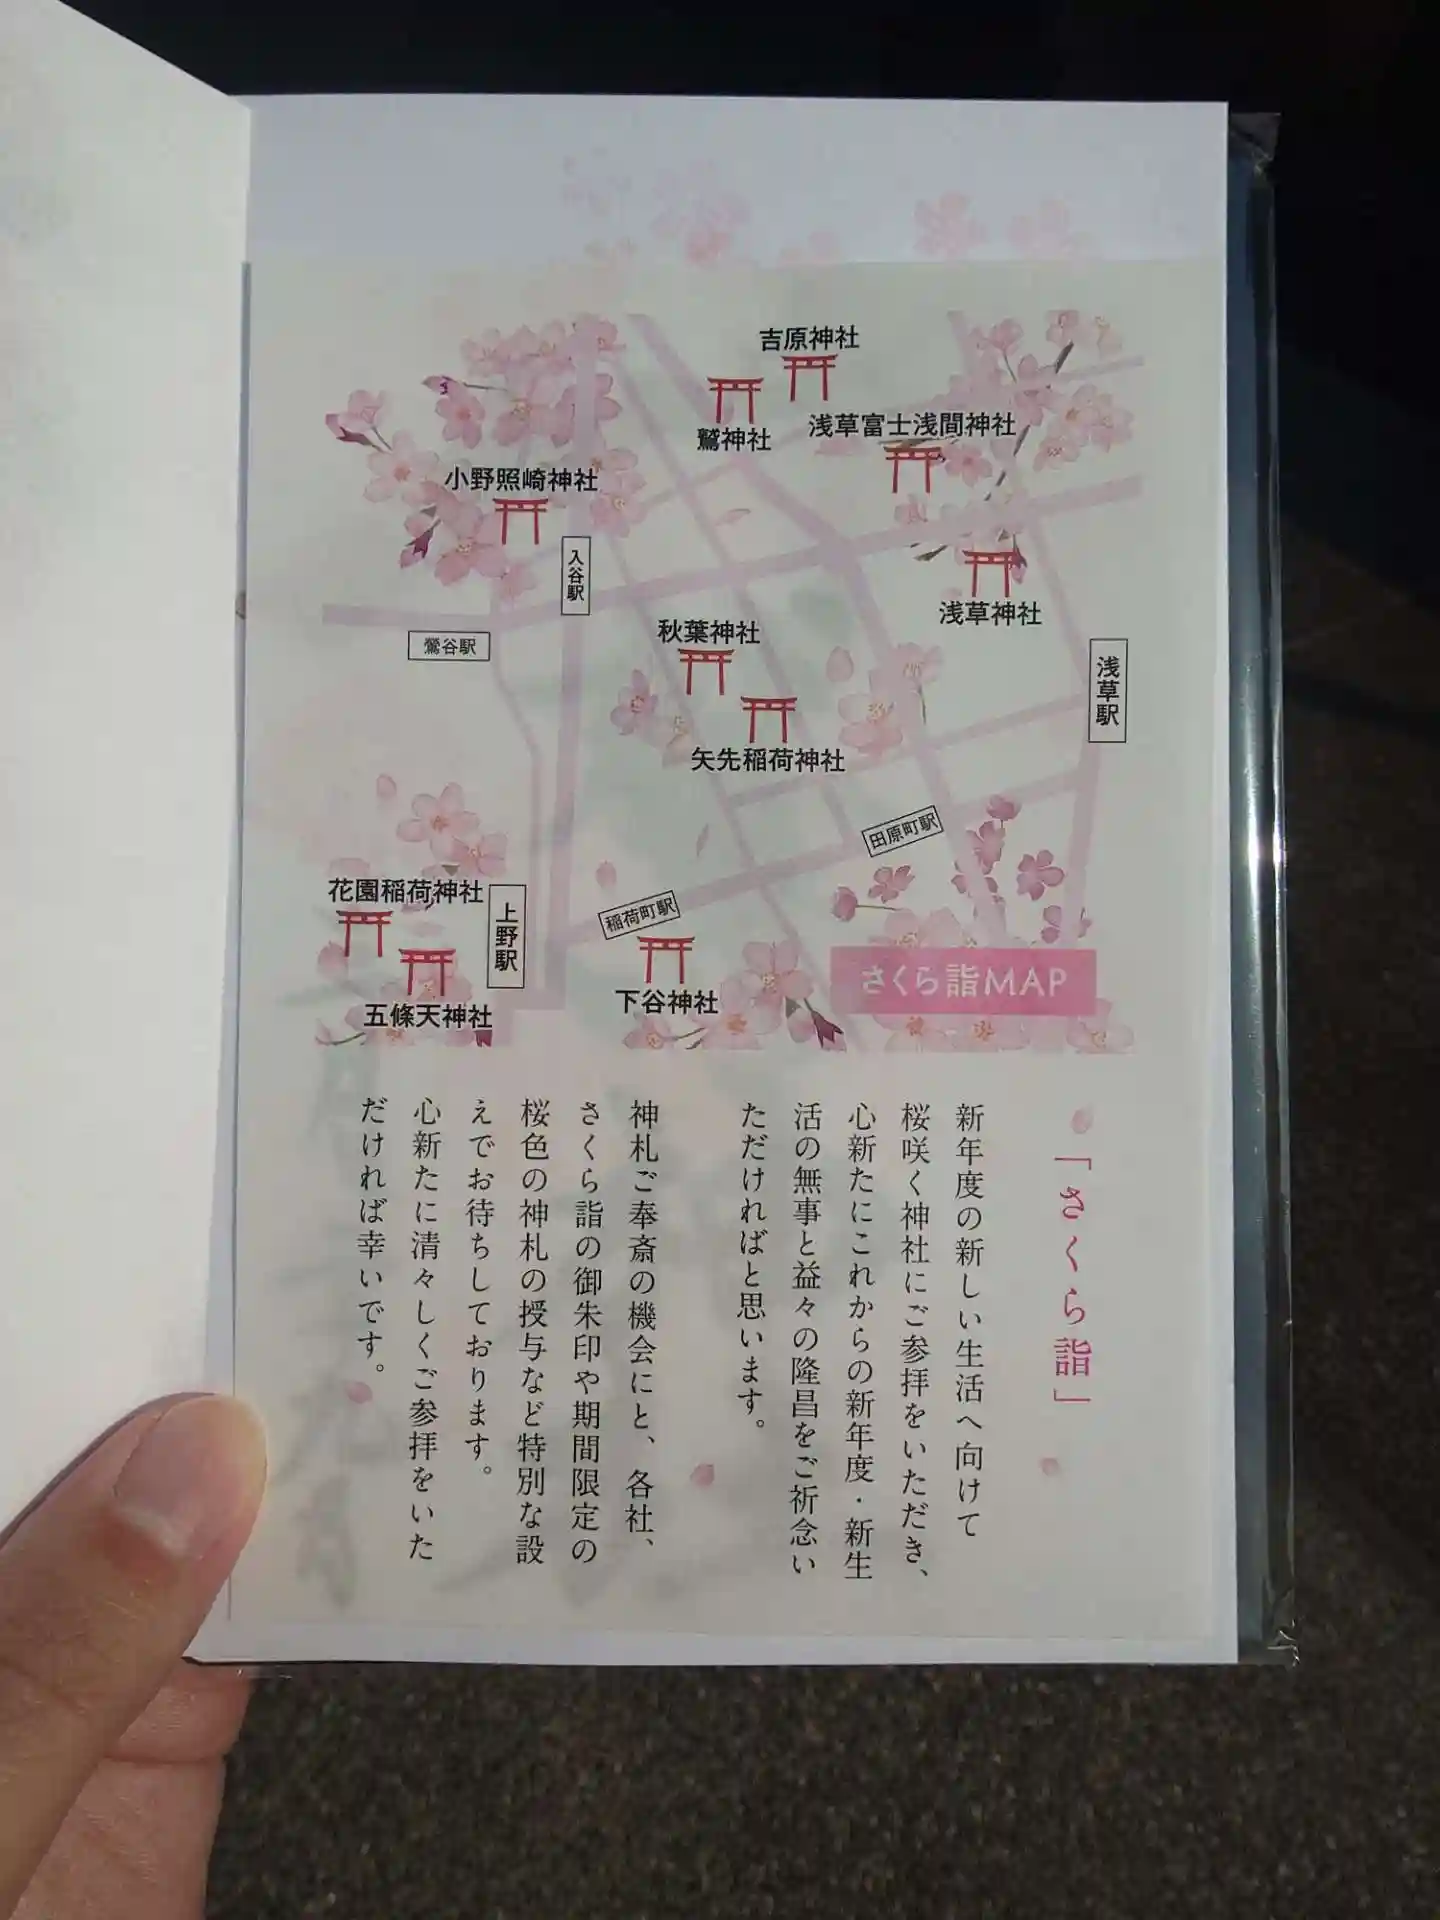 吉原神社
鷲神社
浅草富士浅間神社
小野照崎神社
入谷駅
浅草神社
鶯谷駅
秋葉神社
浅草駅
矢先稲荷神社
田原町駅
花園稲荷神社
上野駅
稲荷町駅
五條天神社
下谷神社
さくら詣MAP
「さくら詣」
新年度の新しい生活へ向けて
桜咲く神社にご参拝をいただき、
心新たにこれからの新年度・新生
活の無事と益々の隆昌をご祈念い
ただければと思います。
神札ご奉斎の機会にと、各社、
さくら詣の御朱印や期間限定の
桜色の神札の授与など特別な設
えでお待ちしております。
心新たに清々しくご参拝をいた
だければ幸いです。